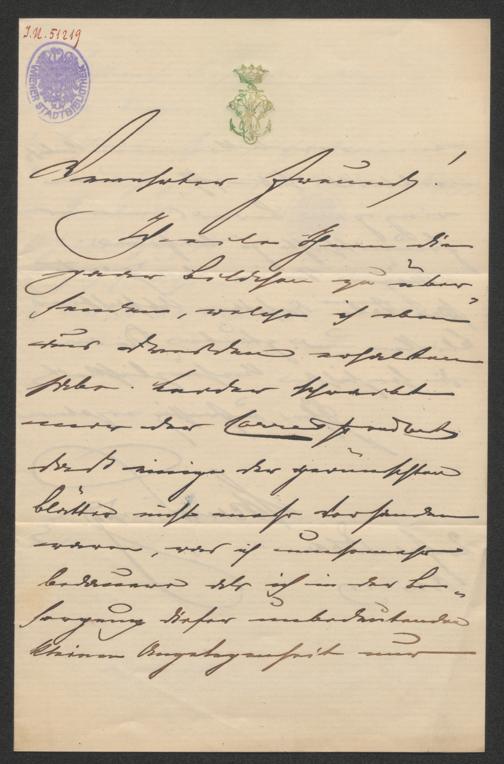 J.N. 51219
WIENER STADTBIBLIOTHEK
Verehrter Freund!
Ich eile Ihnen die
Bildchen zu über
senden, welche ich eben
aus Dresden erhalten
habe. Leider schreibt
mir der Correspondent
daß einige der gewünschten
Blätter nicht mehr vorhanden
waren, was ich umsomehr
bedauere als ich in der Be-
sorgung dieser unbedeutenden
kleinen Angelegenheit nur